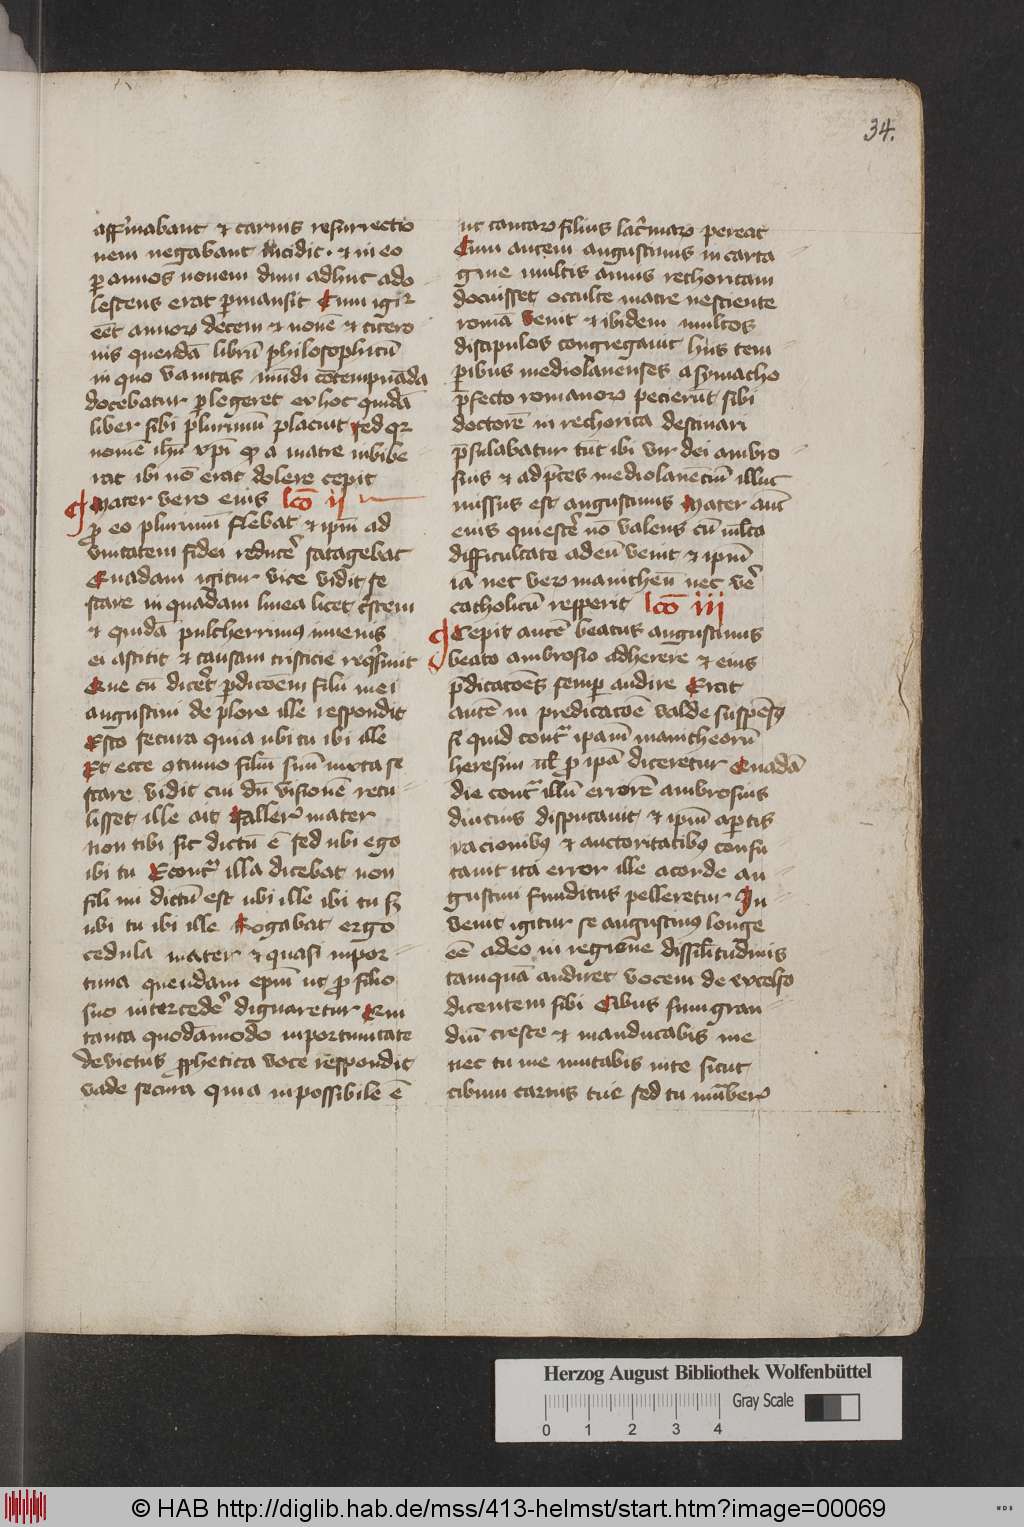 34.
affirmabant et carnis resurrectio
nem negabant incidit. et in eo
per annos novem dum adhuc ado
lescens erat permansit Cum igitur
eet annorum decem et novē et cicero
nis quendā librū philosophicū
in quo vanitas mūdi cōtempnāda
docebatur perlegeret ex hoc quidā
liber sibi plurimū placuit sed quod
nomē ihu xpi quod a matre inbibe
rat ibi nō erat dolere cepit
Mater vero eius lcō ii
pro eo plurimū flebat et ipm ad
vnitatem fidei reducere satagebat
Quadam igitur vice vidit se
stare in quadam linea licet tristem
et quidā pulcherrimus iuvenis
ei astitit et causam tristicie requisivit
Que cū diceret perdicōem filii mei
augustini deplore ille respondit
Esto secura quia ubi tu ibi ille
Et ecce continuo filiū suū iuxta se
stare vidit cui dū visionē retu
lisset ille ait Falleris mater
non tibi sic dictū ē sed ubi ego
ibi tu Econtra illa dicebat non
fili mi dictū est ubi ille ibi tu sed
ubi tu ibi ille Rogabat ergo
cedula mater et quasi inpor
tuna quendam epm ut pro filio
suo intercedere dignaretur Cui
tanta quodāmodo inportunitate
devictus prophetica voce respondit
vade secura quia inpossibile ē
ut tantarum filius lacrimarum pereat
Cum autem augustinus in carta
gine multis annis rethoricam
docuisset occulte matre nesciente
romā venit et ibidem multos
discipulos congregavit hiis tem
poribus mediolanenses a symacho
prefecto romanorum pecierūt sibi
doctorē in rethorica destinari
presulabatur tūc ibi vir dei ambro
sius et ad preces mediolanēciū illuc
missus est augustinus Mater aut
eius quiescere nō valens cū mlta
difficultate ad eū venit et ipm
iā nec vero manicheū nec vere
catholicū repperit lcō iii
Cepit autē beatus augustinus
beato ambrosio adherere et eius
predicacōes semper audire Erat
autē in predicacōe valde suspēsus
si quid contra ipam manicheorū
heresim vel pro ipā diceretur Quadā
die contra illū errorē ambrosius
diucius disputavit et ipm apertis
racionibus et auctoritatibus confu
tavit ita error ille a corde au
gustini funditus pelleretur In
venit igitur se augustinus longe
eē a deo in regione dissilitudinis
tamquā audiret vocem de excelso
dicentem sibi Cibus sum gran
diū cresce et manducabis me
nec tu me mutabis in te sicut
cibum carnis tue sed tu mutaberis
Herzog August Bibliothek Wolfenbüttel
Gray Scale
0 1 2 3 4
© HAB http://diglib.hab.de/mss/413-helmst/start.htm?image=00069